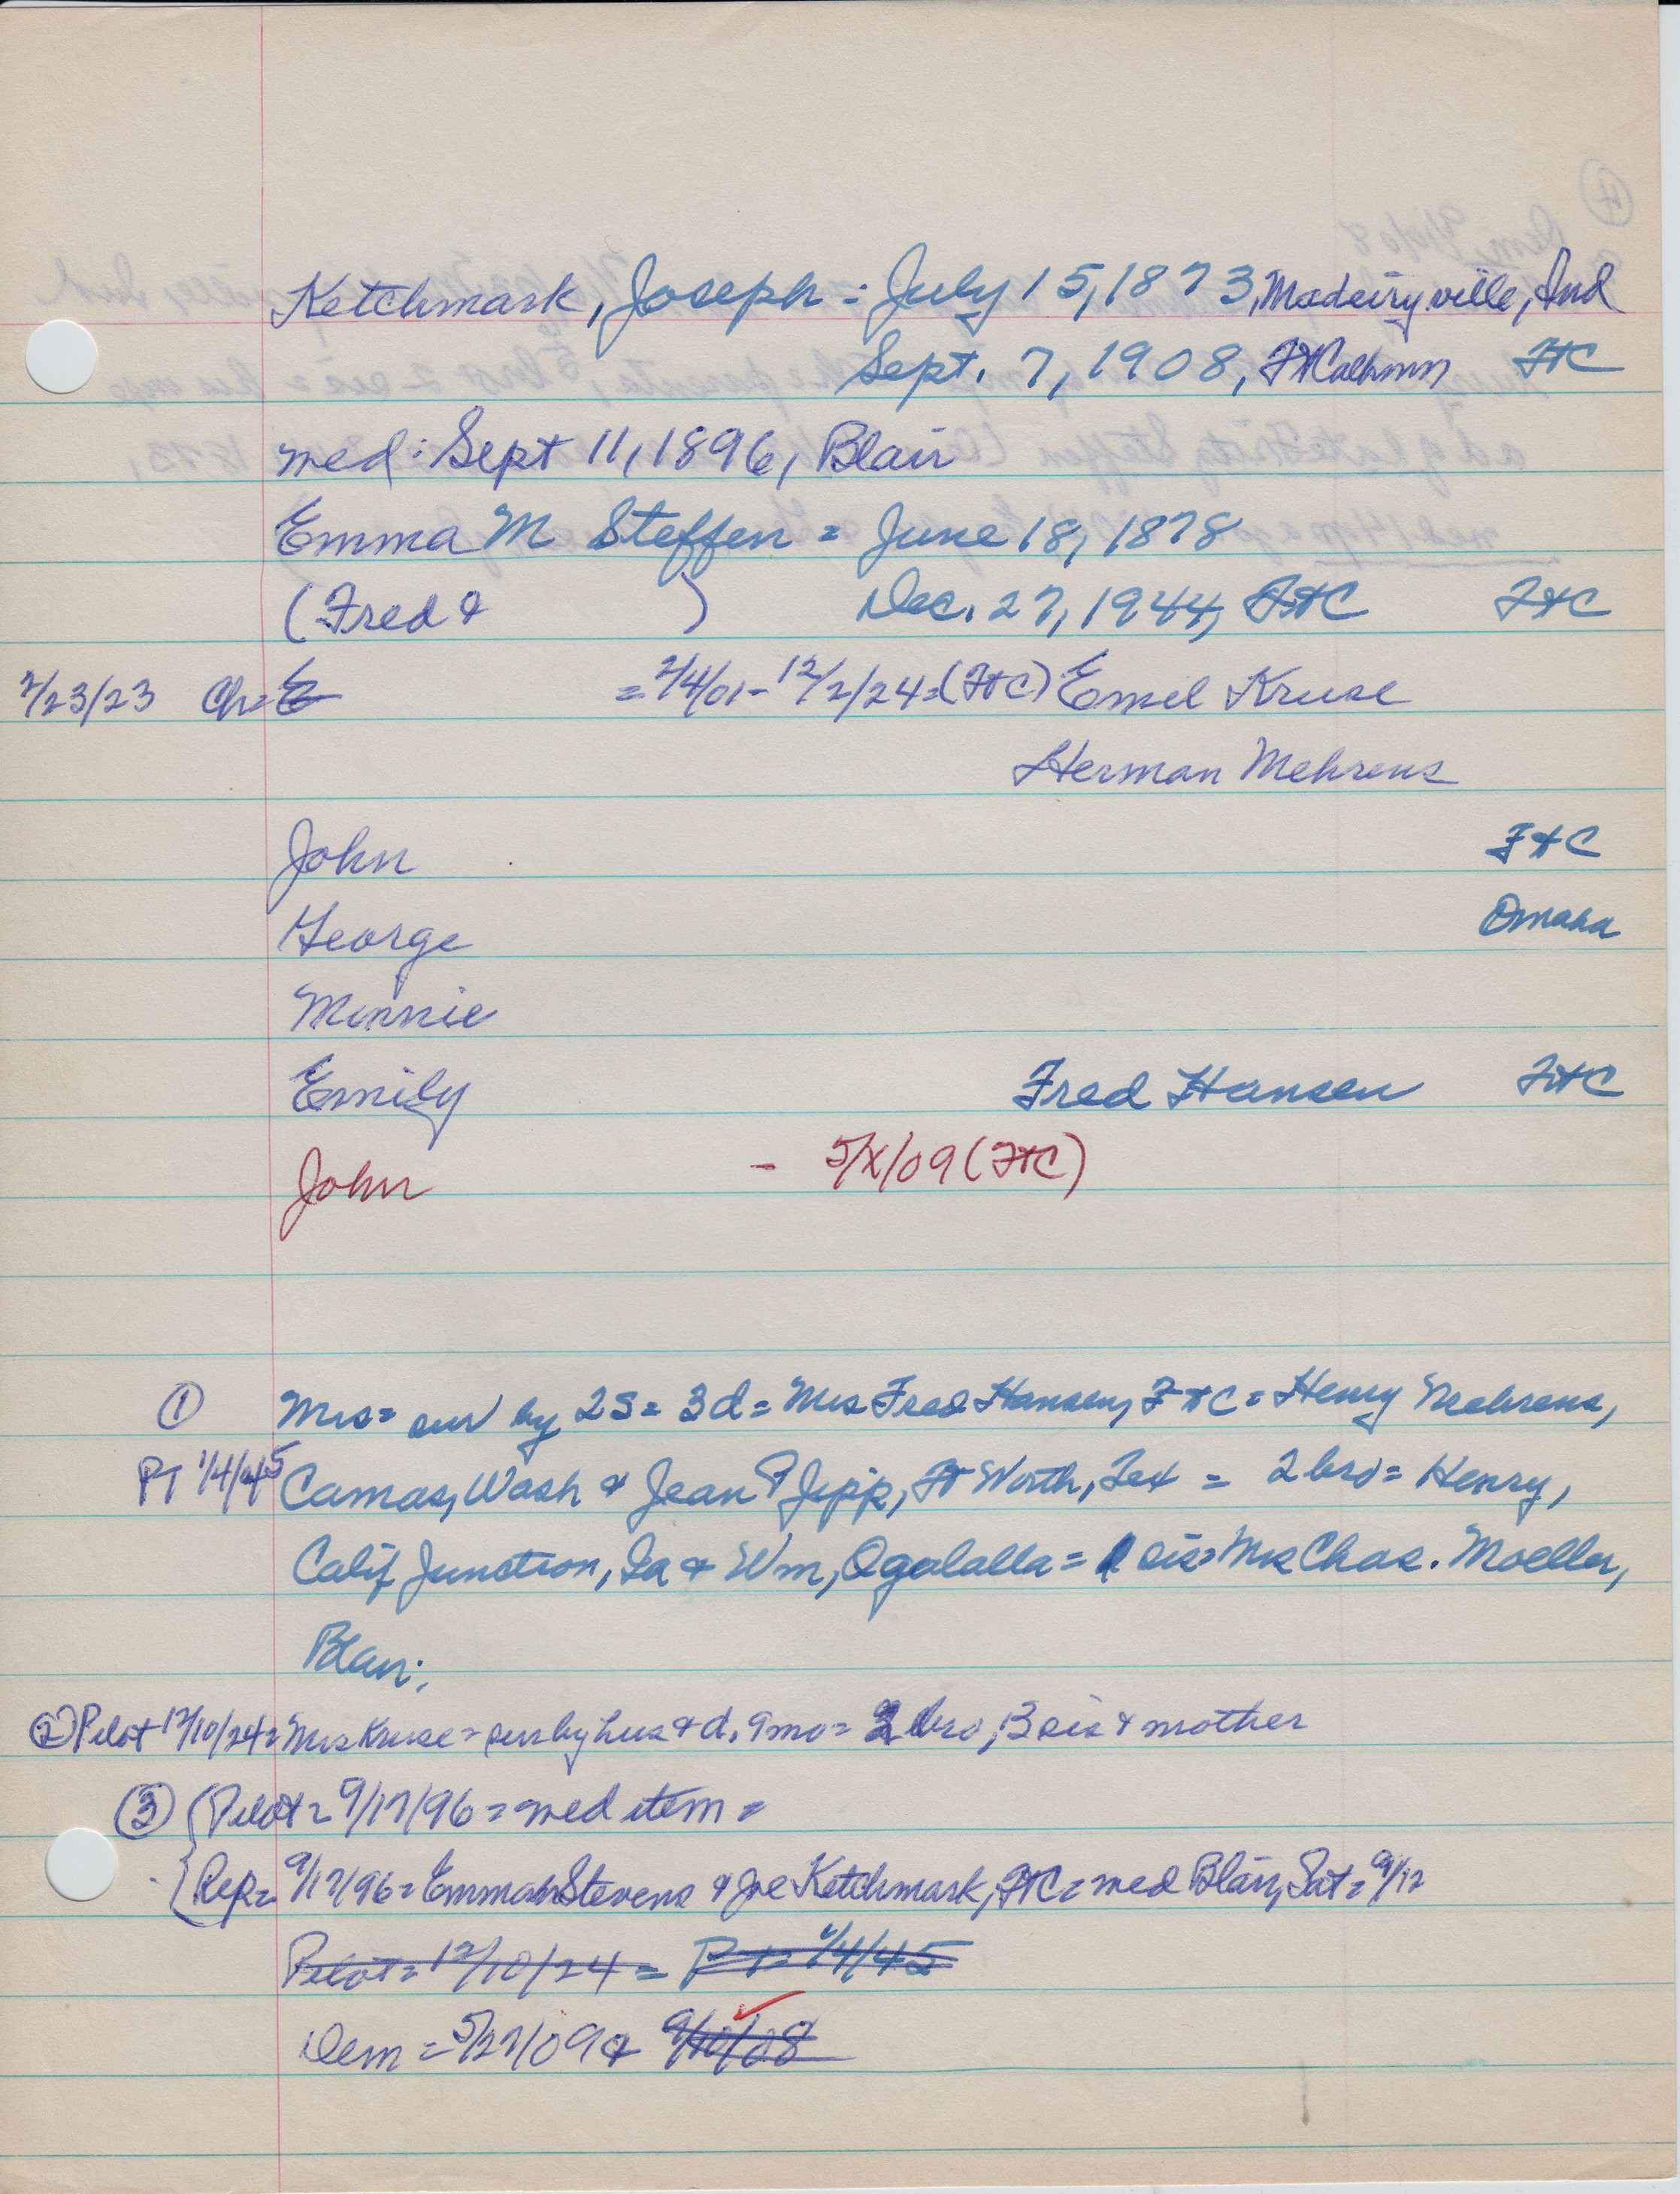 Ketchmark, Joseph = July 15, 1873, Madeiryville, Ind
Sept. 7, 1908, Ft Calhoun FtC
med: Sept 11, 1896, Blair
Emma M Steffen = June 18, 1878
(Fred & ) Dec. 27, 1944, FtC FtC
2/23/23 Ch = E = 2/4/01 - 12/2/24 = (FtC) Emel Kruse
Herman Mehrens
John FtC
George Omaha
Minnie
Emily Fred Hansen FtC
John - 5/X/09 (FtC)
① Mrs = sur by 2s = 3d = Mrs Fred Hansen, FtC = Henry Mehrens,
PT 1/4/45 Camas, Wash & Jean P Jipp, Ft Worth, Tex = 2 bro = Henry,
Calif Junction, Ia & Wm, Ogalalla = 1 sis = Mrs Chas. Moeller,
Blair;
② Pilot 12/10/24 = Mrs Kruse = sur by hus & d. 9 mo = 2 bro, 3 sis & mother
③ Pilot = 9/17/96 = med item =
Rep = 9/17/96 = Emma Stevens & Joe Ketchmark, FtC = med Blair, Sat = 9/12
Pilot = 12/10/24 = PT = 1/4/45
Dem = 5/27/09 & 9/10/08